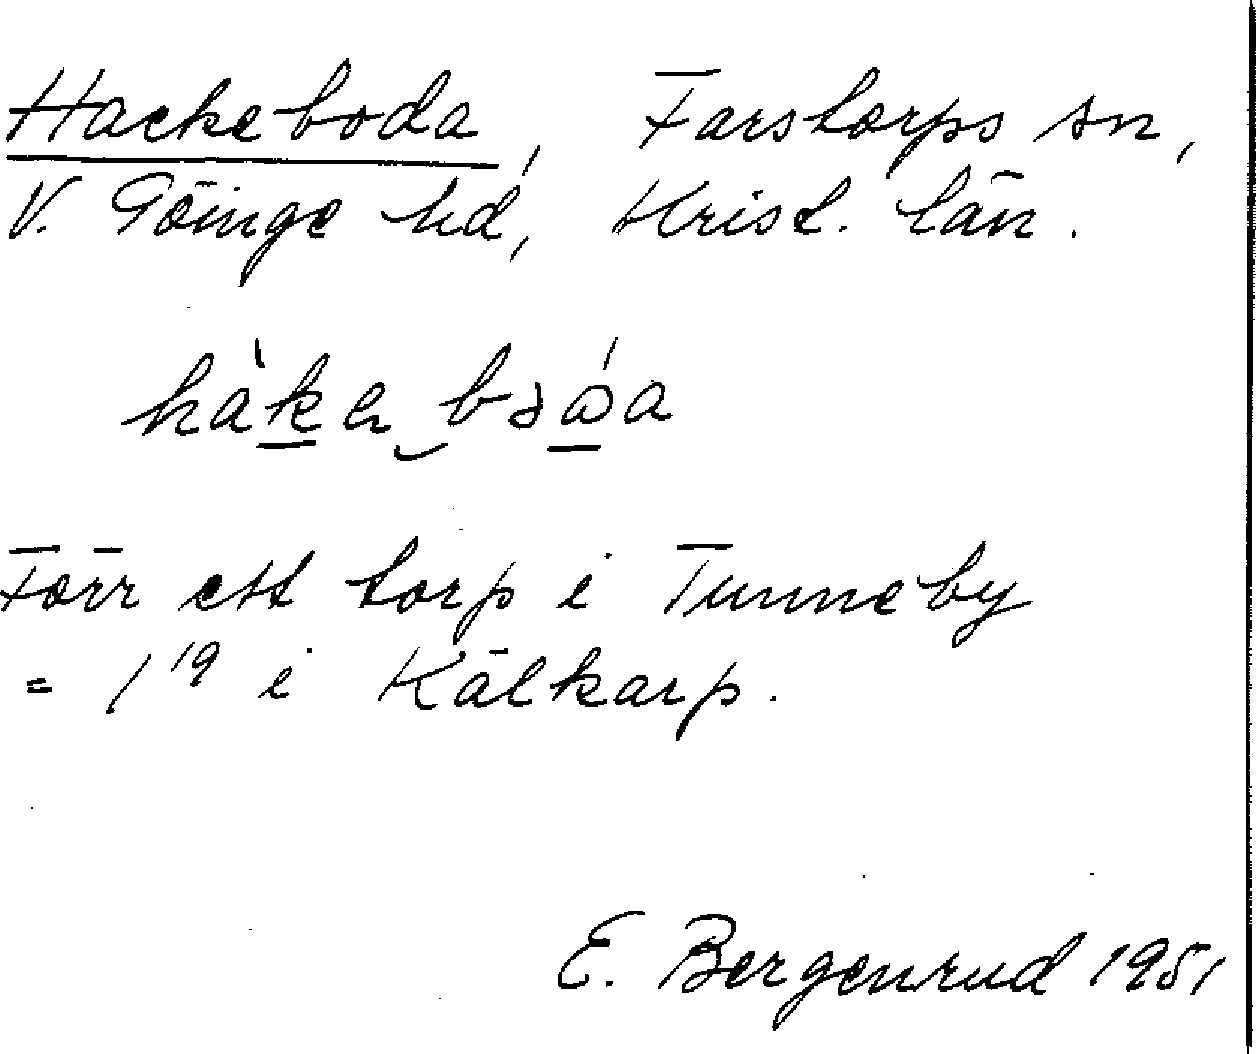 Hackeboda, Farstorps sn,
V. Göinge hd, Krist. län.
hàkabɜǻa
Förr ett torp i Tunneby
= 1¹⁹ i Kälkarp.
E. Bergenrud 1951